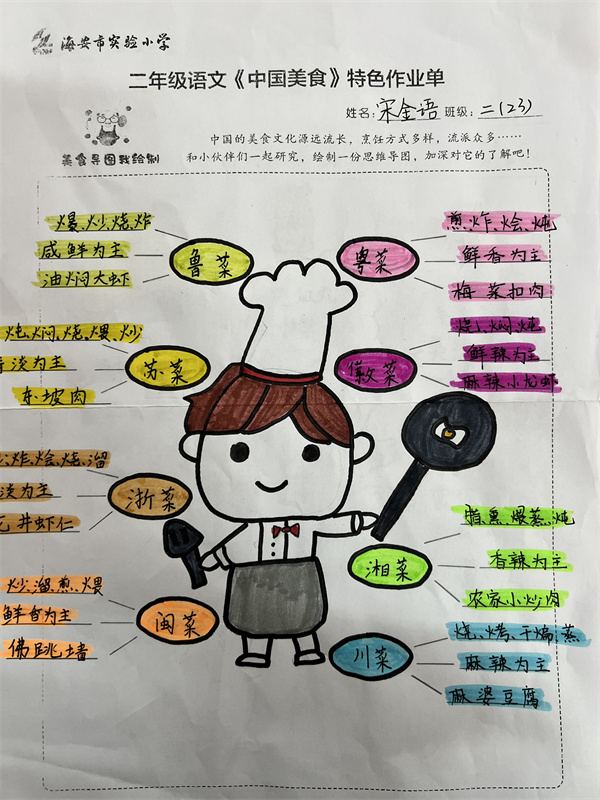 海安市实验小学
二年级语文《中国美食》特色作业单
姓名:宋金语 班级:二(23)
美食导图我绘制
中国的美食文化源远流长，烹饪方式多样，流派众多……
和小伙伴们一起研究，绘制一份思维导图，加深对它的了解吧!
鲁菜
爆、炒、烧、炸
咸鲜为主
油焖大虾
苏菜
炖、焖、炖、煨、炒
淡为主
东坡肉
浙菜
炸、烩、烧、溜
淡为主
井虾仁
闽菜
炒、溜、煎、煨
鲜香为主
佛跳墙
粤菜
煎、炸、烩、炖
鲜香为主
梅菜扣肉
徽菜
烧、焖、炖
鲜辣为主
麻辣小龙虾
湘菜
腊、熏、煨、蒸、炖
香辣为主
农家小炒肉
川菜
烧、烤、干煸、蒸
麻辣为主
麻婆豆腐